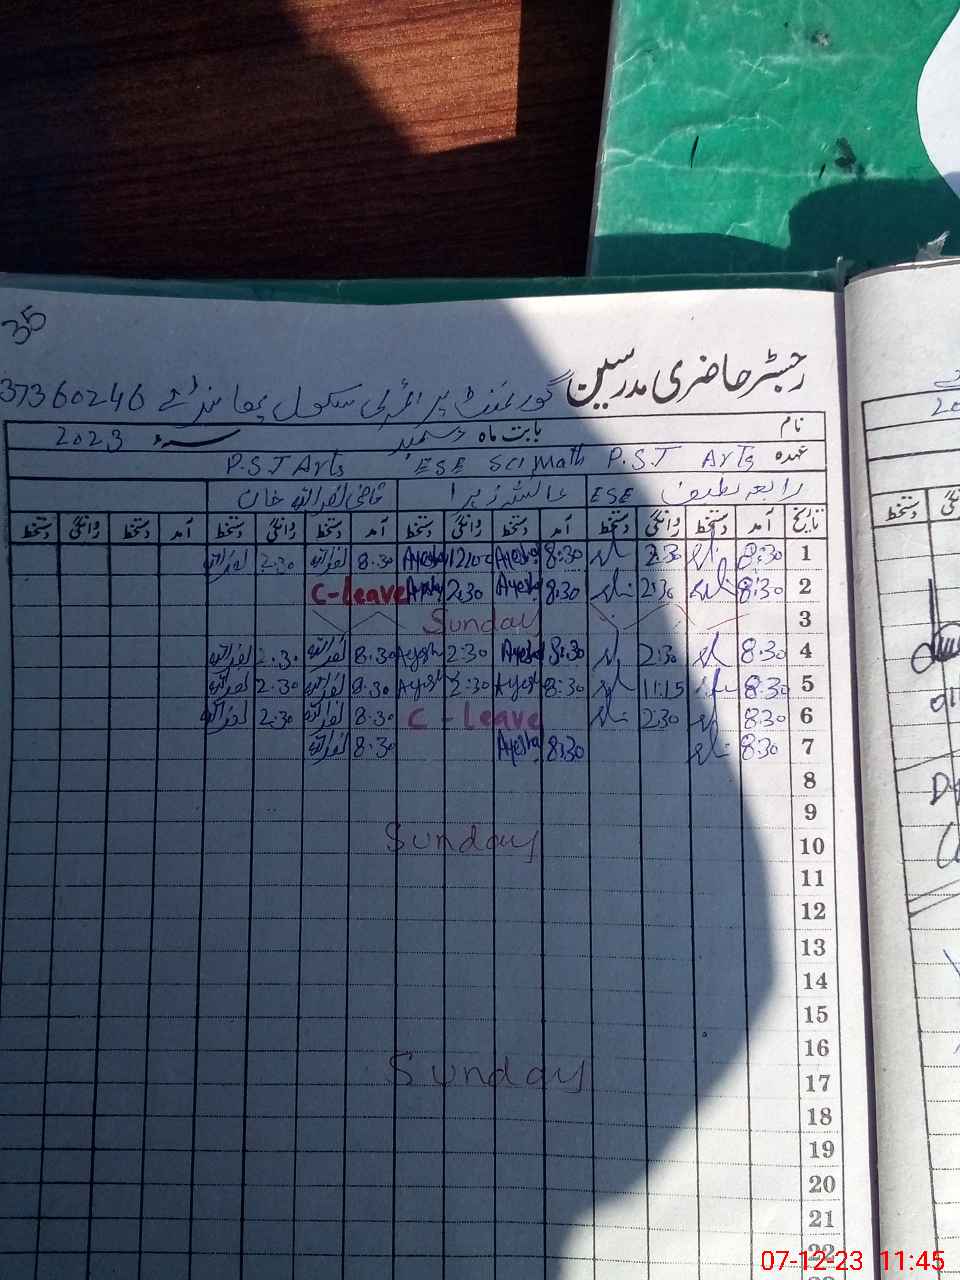 35
رجسٹر حاضری مدرسین گورنمنٹ پرائمری سکول 37360246
نام
بابت ماہ دسمبر سنہ 2023
عہدہ P.S.T Arts ESE Sci Math P.S.T Arts
رابعہ لطیف ESE عائشہ زہرا قاضی نصراللہ خان
تاریخ آمد دستخط روانگی دستخط آمد دستخط روانگی دستخط آمد دستخط روانگی دستخط آمد دستخط روانگی دستخط
1 8:30 2:30 8:30 Ayesha Ayesha 8:30 نصراللہ 2:30 نصراللہ
2 8:30 2:30 8:30 Ayesha 2:30 Ayesha C-leave
3 Sunday
4 8:30 2:30 8:30 Ayesha 2:30 Ayesha 8:30 نصراللہ 2:30 نصراللہ
5 8:30 11:15 8:30 Ayesha 2:30 Ayesha 8:30 نصراللہ 2:30 نصراللہ
6 8:30 2:30 C-Leave 8:30 نصراللہ 2:30 نصراللہ
7 8:30 8:30 Ayesha 8:30 نصراللہ
8
9
10 Sunday
11
12
13
14
15
16
17 Sunday
18
19
20
21
22
07-12-23 11:45